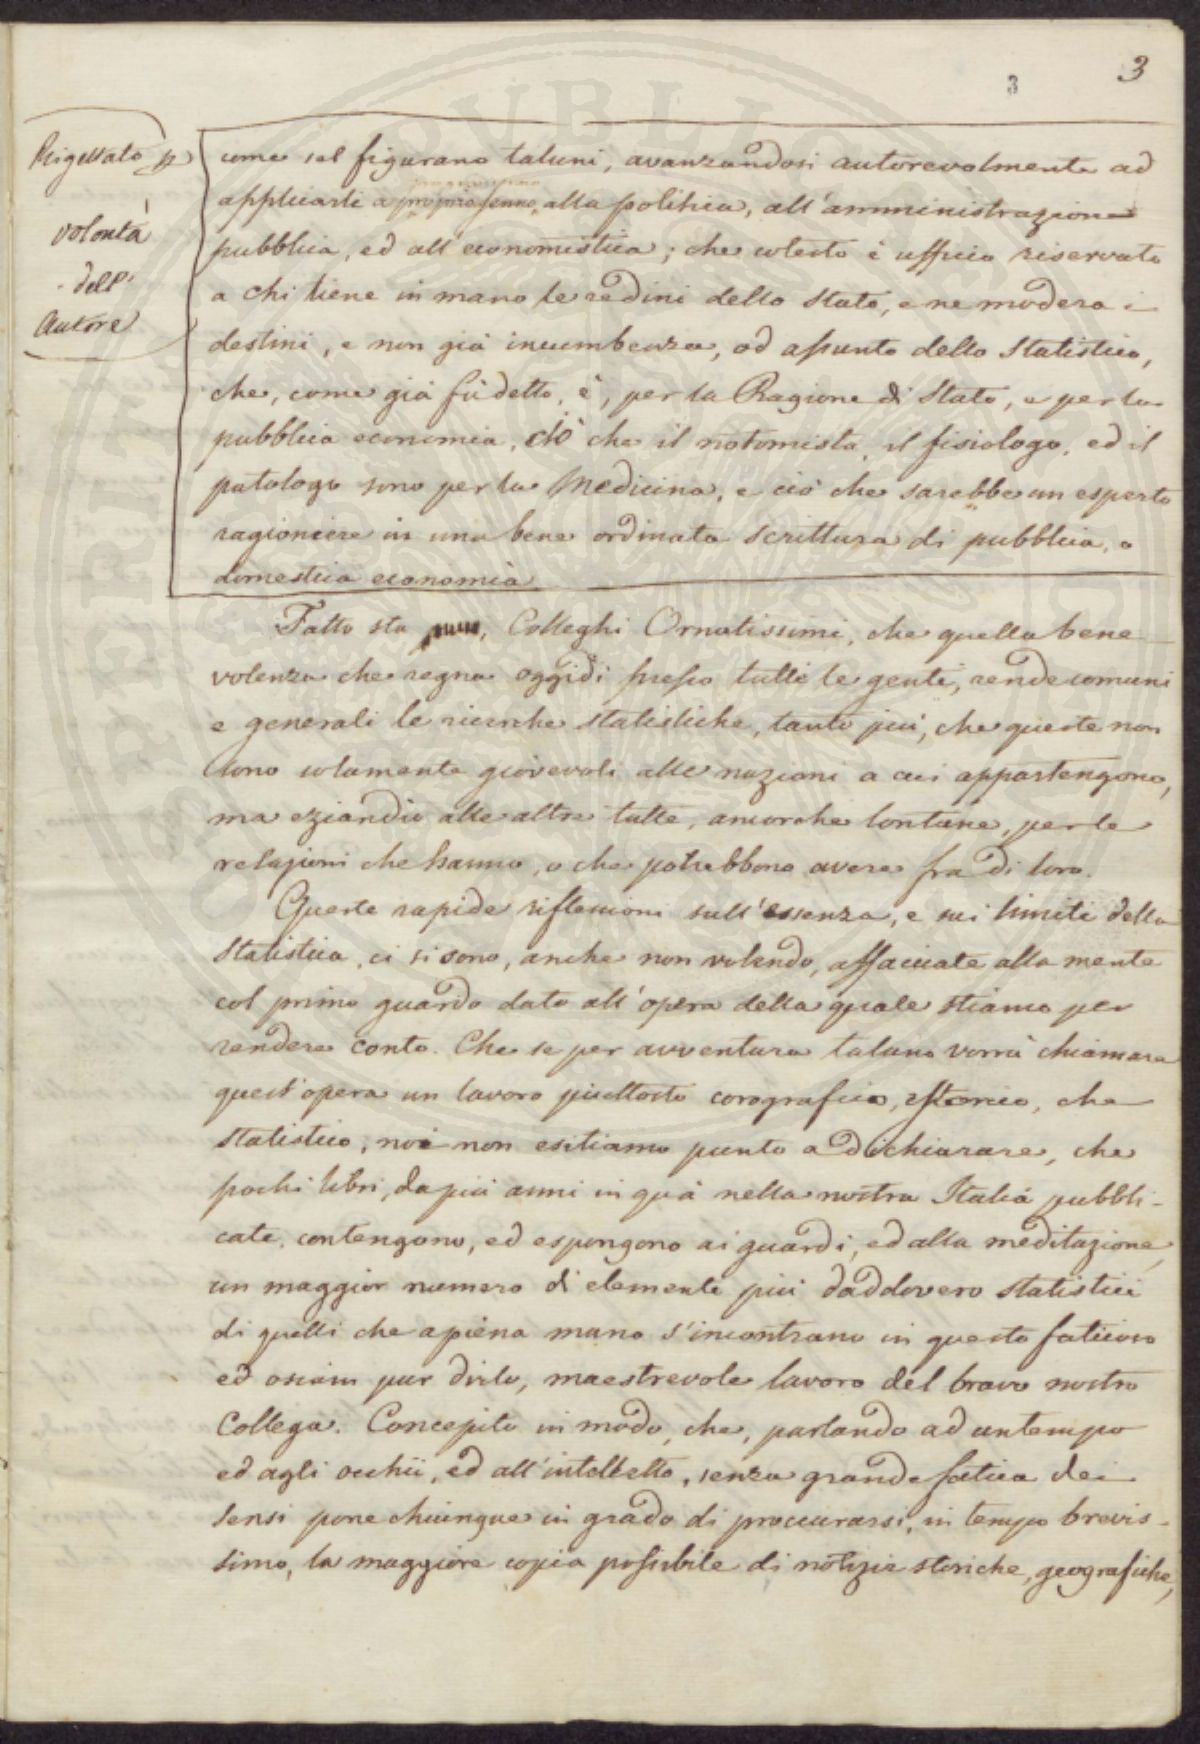 3
3
Rigettato p
volontà
dell'
Autore
come sel figurano taluni, avanzandosi autorevolmente ad
applicarli a proprio senno, alla politica, all'amministrazione
pubblica, ed all'economistica; che cotesto è ufficio riservato
a chi tiene in mano le redini dello Stato, e ne modera i
destini, e non già incumbenza, od assunto dello Statistico,
che, come già fù detto, è, per la Ragione di Stato, e per la
pubblica economia, ciò che il notomista, il fisiologo, ed il
patologo sono per la Medicina, e ciò che sarebbe un esperto
ragioniere in una bene ordinata scrittura di pubblica, o
domestica economia
Fatto sta, Colleghi Ornatissimi, che quella bene
volenza che regna oggidì presso tutte le genti, rende comuni
e generali le ricerche statistiche, tanto più, che queste non
sono solamente giovevoli alle nazioni a cui appartengono,
ma eziandio alle altre tutte, ancorche lontane, per le
relazioni che hanno, o che potrebbono avere fra di loro.
Queste rapide riflessioni sull'essenza, e sui limiti della
Statistica, ci si sono, anche non volendo, affacciate alla mente
col primo guardo dato all'opera della quale stiamo per
rendere conto. Che se per avventura taluno vorrà chiamare
quest'opera un lavoro piuttosto corografico, storico, che
statistico, noi non esitiamo punto a dichiarare, che
pochi libri, da più anni in quà nella nostra Italia pubbli-
cate, contengono, ed espongono ai guardi, ed alla meditazione,
un maggior numero di elementi più daddovero statistici
di quelli che a piena mano s'incontrano in questo faticoso
ed osiam pur dirlo, maestrevole lavoro del bravo nostro
Collega. Concepito in modo, che, parlando ad un tempo
ed agli occhii, ed all'intelletto, senza grande fatica dei
sensi pone chiunque in grado di proccurarsi, in tempo brevis-
simo, la maggiore copia possibile di notizie storiche, geografiche,